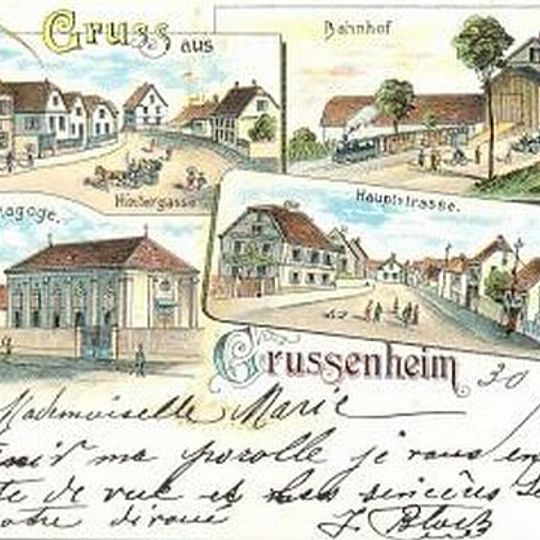 Gruss aus
Bahnhof
Hintergasse
agoge.
Hauptstrasse.
Grussenheim
30
Mademoiselle Marie
ma parolle je vous en
te de vue et les sincères
otre dévoué J. Bloch